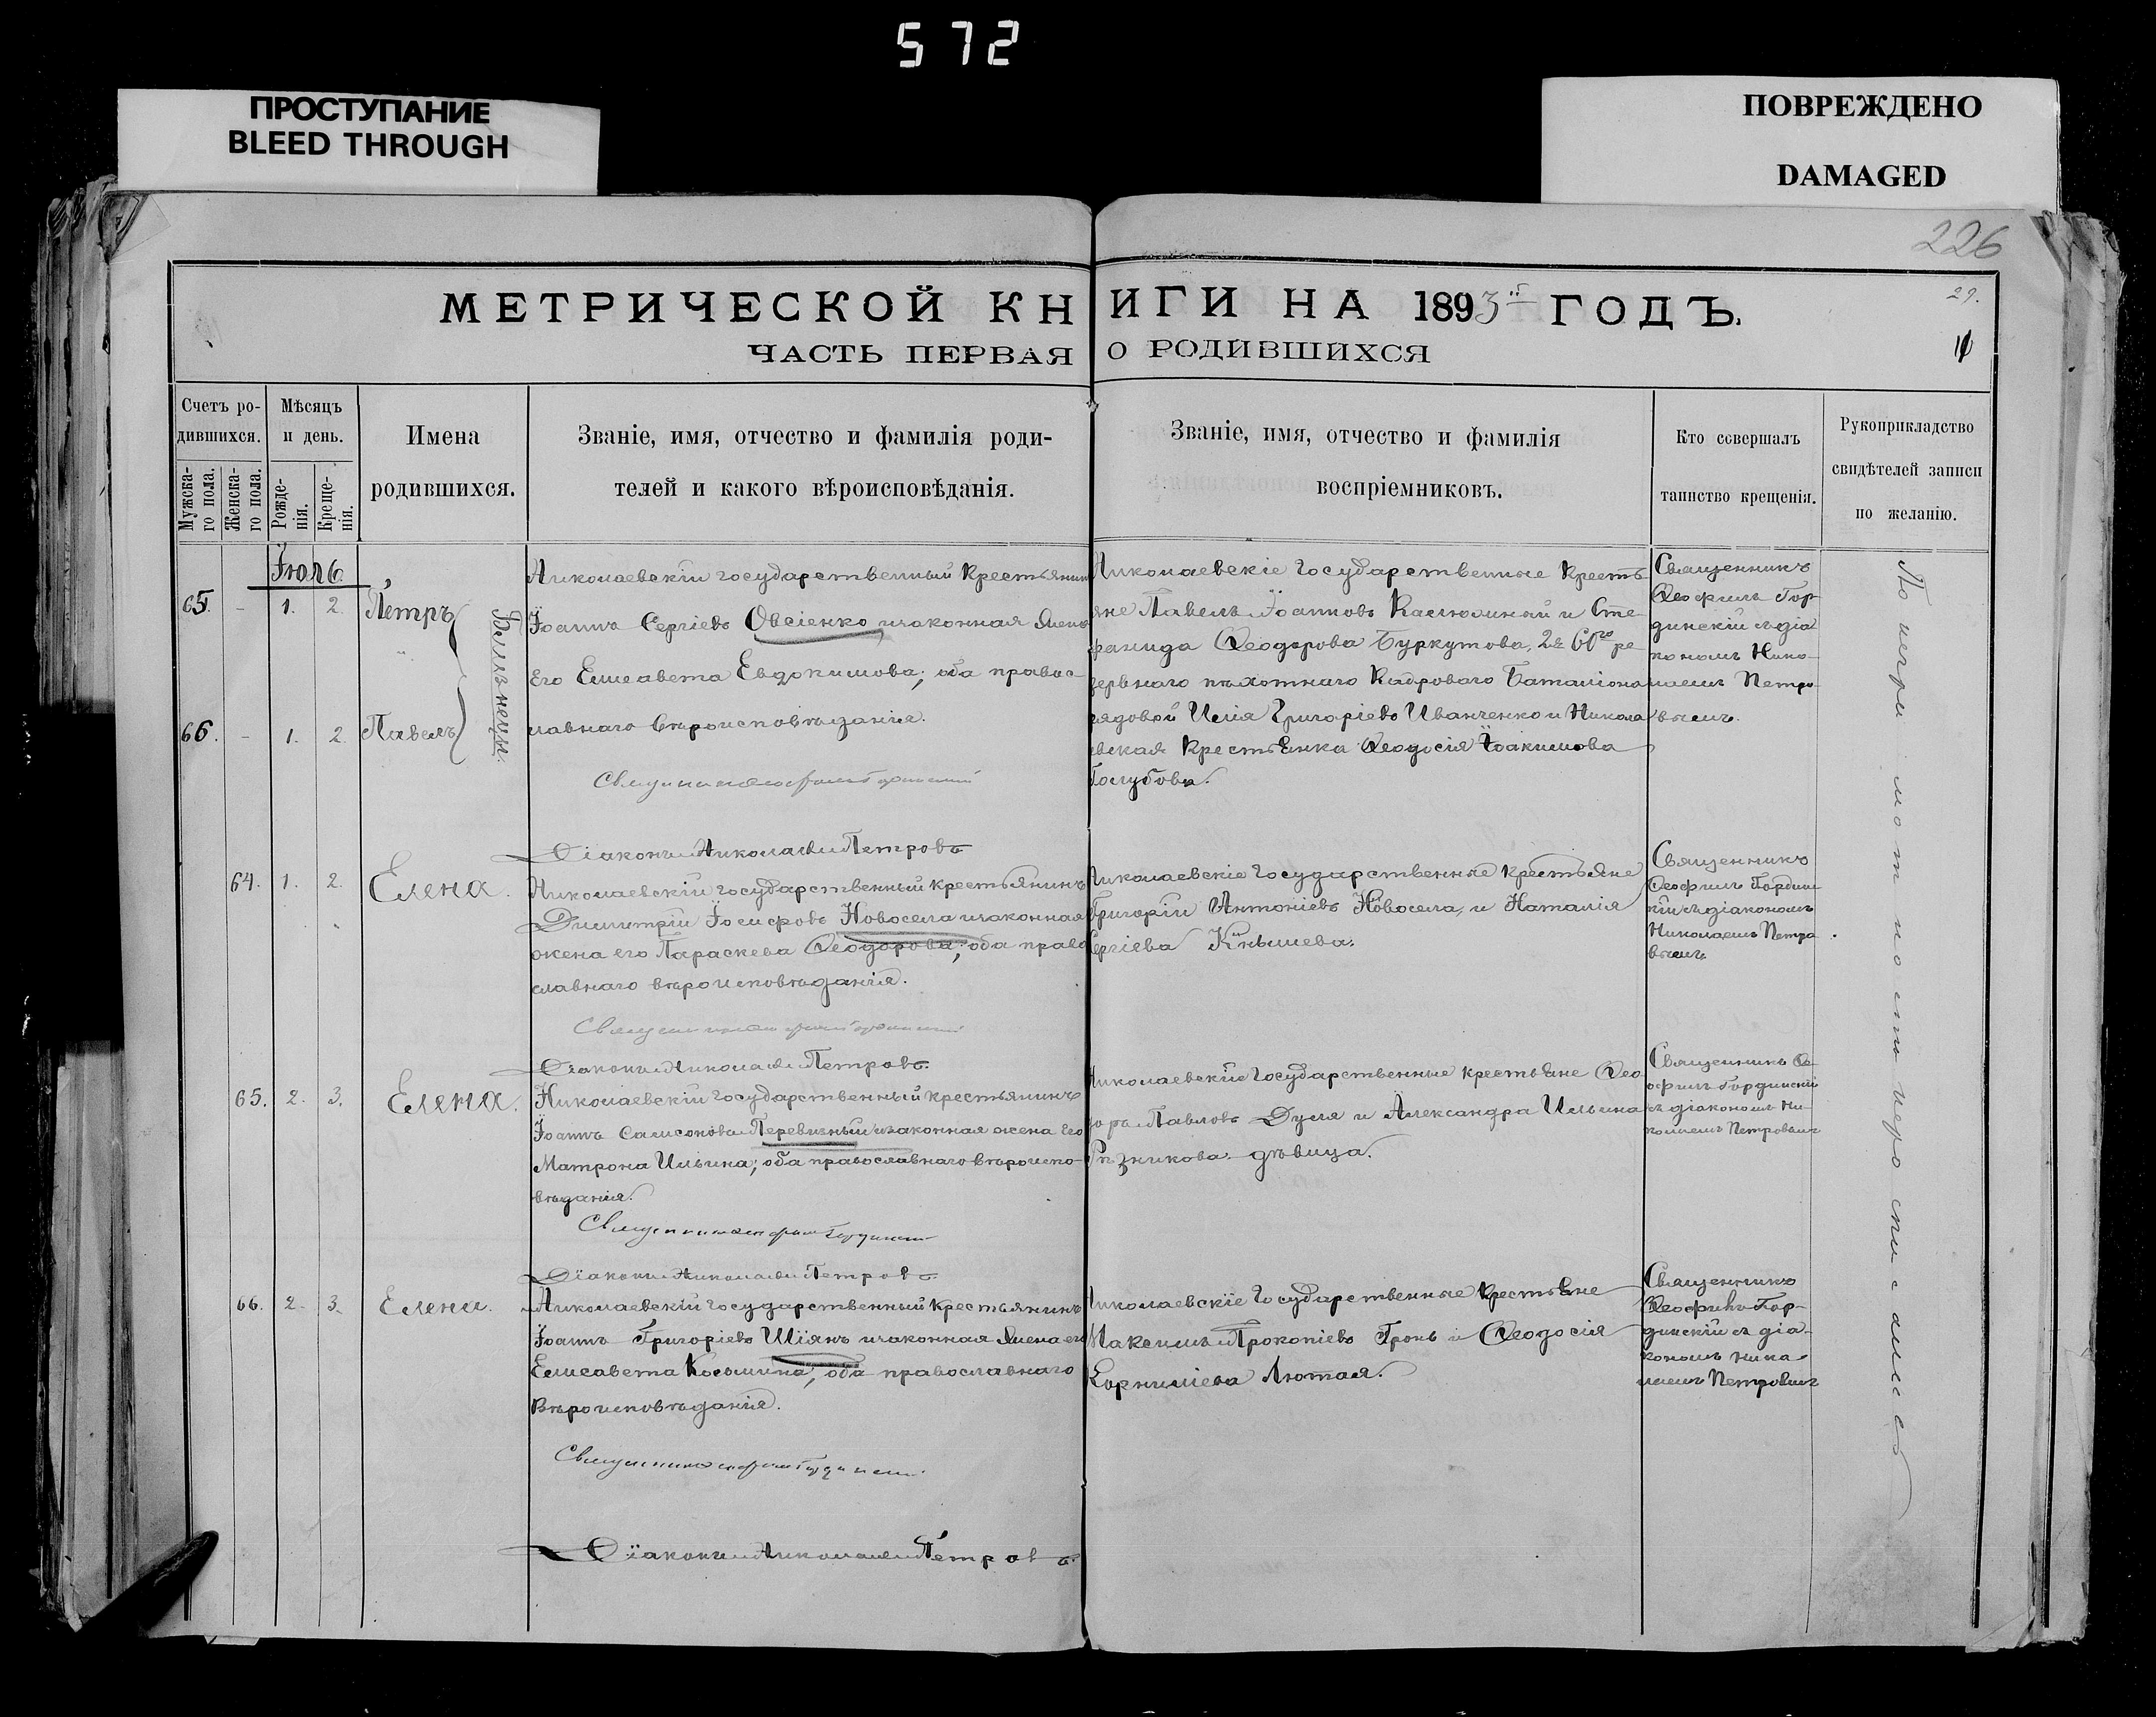 572
ПРОСТУПАНИЕ
BLEED THROUGH
ПОВРЕЖДЕНО
DAMAGED
226
29.
МЕТРИЧЕСКОЙ КНИГИ НА 1893й ГОДЪ.
ЧАСТЬ ПЕРВАЯ О РОДИВШИХСЯ
Счетъ ро-
дившихся.
Мужска-
го пола.
Женска-
го пола.
Мѣсяцъ
и день.
Рожде-
нія.
Креще-
нія.
Имена
родившихся.
Званіе, имя, отчество и фамилія роди-
телей и какого вѣроисповѣданія.
Званіе, имя, отчество и фамилія
воспріемниковъ.
Кто совершалъ
таинство крещенія.
Рукоприкладство
свидѣтелей записи
по желанію.
Іюль
65. - 1. 2. Петръ
66. - 1. 2. Павелъ
Близнецы.
Николаевскій государственный крестьянин
Іоаннъ Сергіевъ Овсіенко и законная жена
его Елисавета Евдокимова; оба правос-
лавнаго вѣроисповѣданія.
Діаконъ Николай Петровъ
Николаевскіе государственные кресть-
яне Павелъ Іоанновъ и Сте-
фанида Ѳеодорова Буркутова, 2е 60го ре-
зервнаго пѣхотнаго Кадроваго Баталіона
рядовой Илія Григоріевъ Иванченко и Никола
евская крестьянка Ѳеодосія Іоакимова
Голубова.
Священникъ
Ѳеофилъ Гор-
динскій съ діа
кономъ Нико-
лаемъ Петро-
вымъ.
64. 1. 2. Елена.
Николаевскій государственный крестьянинъ
Димитрій Іосифовъ Новосела и законная
жена его Параскева Ѳеодорова; оба право
славнаго вѣроисповѣданія.
Діаконъ Николай Петровъ.
Николаевскіе государственные крестьяне
Григорій Антоніевъ Новосела, и Наталія
Сергіева Кнышева.
Священникъ
Ѳеофилъ Гордин
кій съ діакономъ
Николаемъ Петро
вымъ
65. 2. 3. Елена.
Николаевскій государственный крестьянинъ
Іоаннъ Самсоновъ и законная жена его
Матрона Ильина; оба православнаго вѣроиспо-
вѣданія.
Діаконъ Николай Петровъ.
Николаевскіе государственные крестьяне Ѳео
доръ Павловъ Дуля и Александра Ильина
Рѣзникова дѣвица.
Священникъ Ѳе-
офилъ Гординскій
съ діакономъ Ни-
колаемъ Петровым
66. 2. 3. Елена.
Николаевскій государственный крестьянинъ
Іоаннъ Григоріевъ Шіянъ и законная жена его
Елисавета Косьмина; оба православнаго
вѣроисповѣданія.
Діаконъ Николай Петровъ.
Николаевскіе государственные крестьяне
Максимъ Прокопіевъ Гронь и Ѳеодосія
Корниліева Лютая.
Священникъ
Ѳеофилъ Гор-
динскій съ діа-
кономъ Нико
лаемъ Петровым